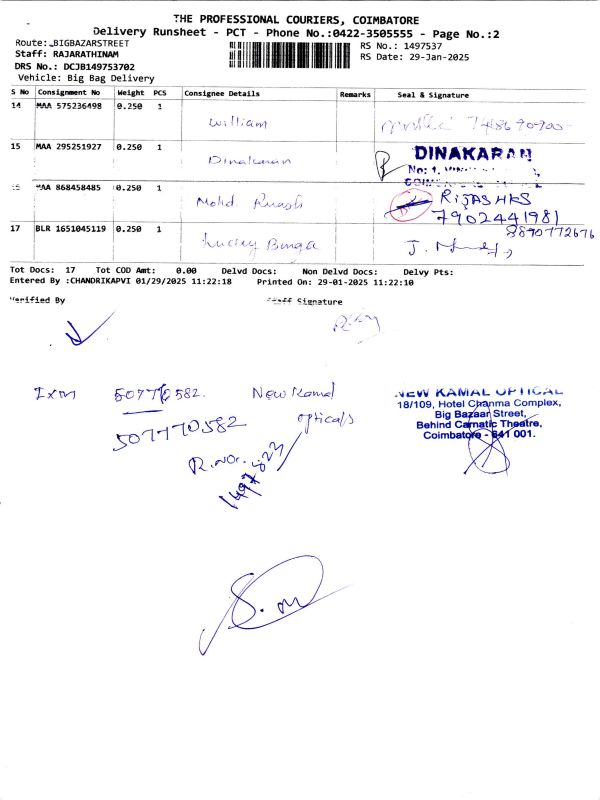 THE PROFESSIONAL COURIERS, COIMBATORE
Delivery Runsheet - PCT - Phone No.:0422-3505555 - Page No.:2
Route:.BIGBAZARSTREET RS No.: 1497537
Staff: RAJARATHINAM RS Date: 29-Jan-2025
DRS No.: DCJB149753702
Vehicle: Big Bag Delivery
S No Consignment No Weight PCS Consignee Details Remarks Seal & Signature
14 MAA 575236498 0.250 1 William
15 MAA 295251927 0.250 1 Dinakaran DINAKARAN
No: 1,
MAA 868458485 0.250 1 Mohd RIJASHKS
7902441981
8890772676
17 BLR 1651045119 0.250 1 Lucky
Tot Docs: 17 Tot COD Amt: 0.00 Delvd Docs: Non Delvd Docs: Delvy Pts:
Entered By :CHANDRIKAPVI 01/29/2025 11:22:18 Printed On: 29-01-2025 11:22:10
Verified By Staff Signature
50770582. New Kamal
opticals
507770582
R.No.
NEW KAMAL OPTICAL
18/109, Hotel Channa Complex,
Big Bazaar Street,
Behind Carnatic Theatre,
Coimbatore - 641 001.